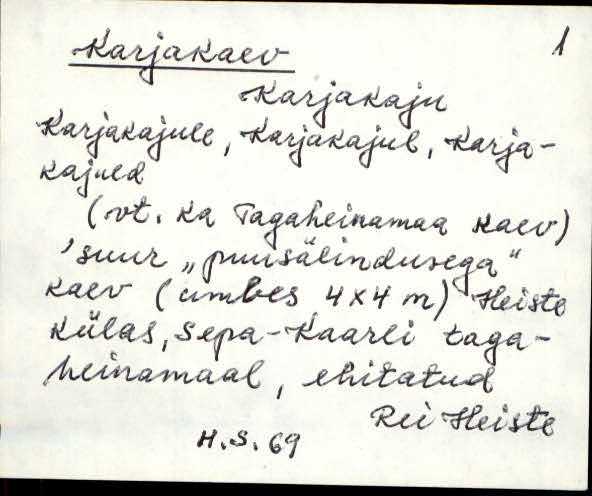 Karjakaev 1
Karjakaju
Karjakajule, Karjakajul, Karja-
kajued
(vt. ka Tagaheinamaa kaev)
'suur „puusälindusega"
kaev (umbes 4x4 m) Heiste
külas, Sepa-Kaarli taga-
heinamaal, ehitatud
Rei Heiste
H.S. 69